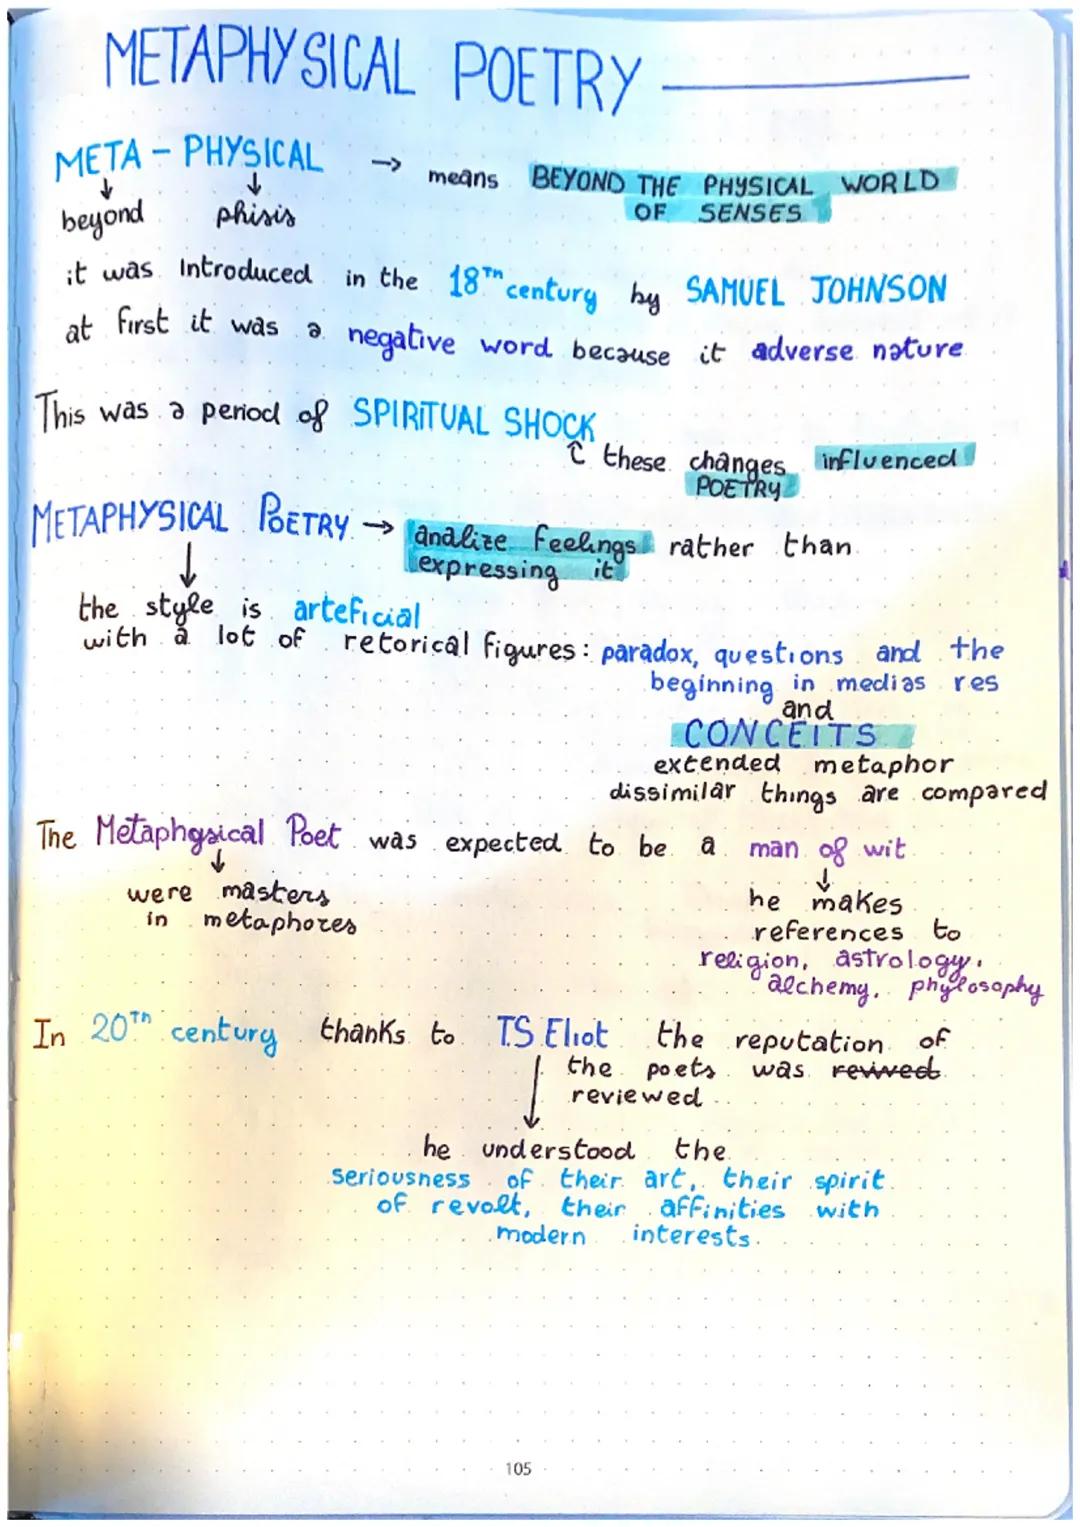 METAPHYSICAL POETRY
META - PHYSICAL → means BEYOND THE PHYSICAL WORLD
OF SENSES
beyond phisis
it was Introduced in the 18Th century by SAMUEL JOHNSON
at first it was a negative word because it adverse nature
This was a period of SPIRITUAL SHOCK
these changes influenced
POETRY
METAPHYSICAL POETRY → analize feelings rather than
expressing it
the style is arteficial
with a lot of retorical figures: paradox, questions and the
beginning in medias res
and
CONCEITS
extended metaphor
dissimilar things are compared
The Metaphysical Poet was expected to be a man of wit
were masters
in metaphores
he makes
references to
religion, astrology,
alchemy, phylosophy
In 20Th century thanks to T.S Eliot the reputation of
the poets was revived
reviewed
he understood the
seriousness of their art, their spirit
of revolt, their affinities with
modern interests.
105